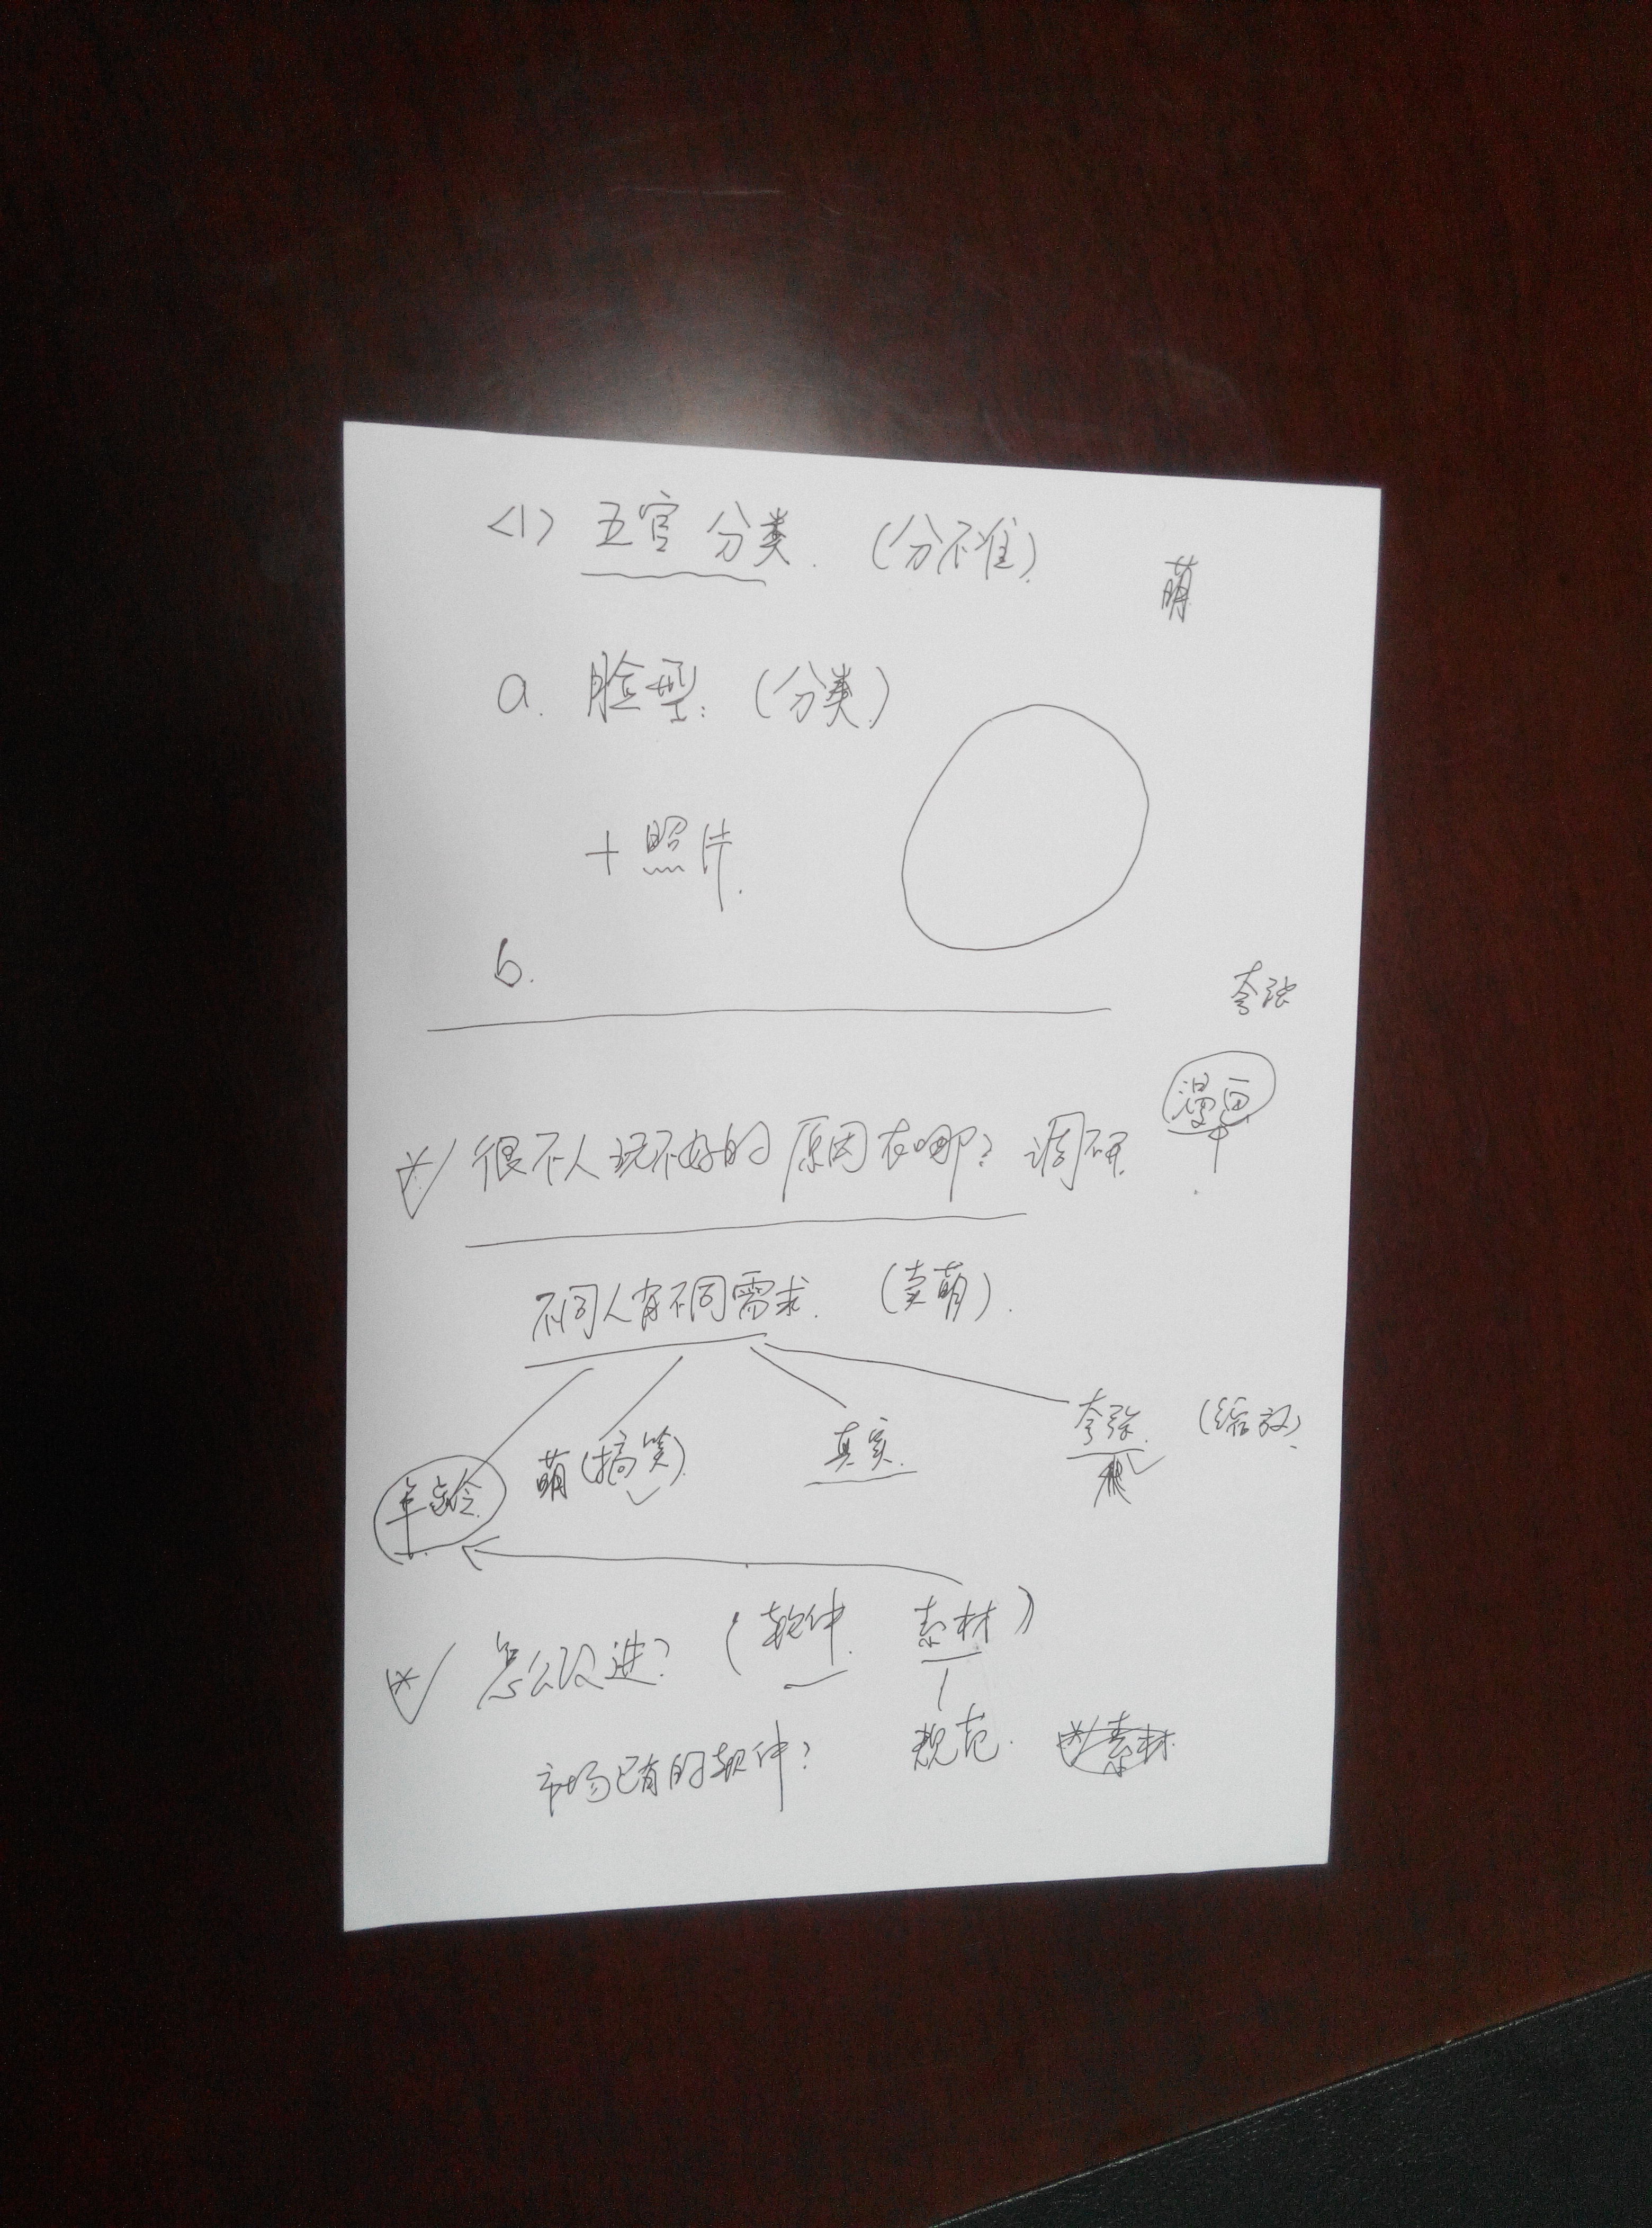 <1> 五官分类. (分不准)
萌
a. 脸型: (分类)
+ 照片.
b.
夸张
漫画
很不人玩不好的原因在哪? 调研
不同人有不同需求. (卖萌).
年龄 萌(搞笑) 真实. 夸张. (缩放)
怎么改进? (软件. 素材)
市场已有的软件? 规范.